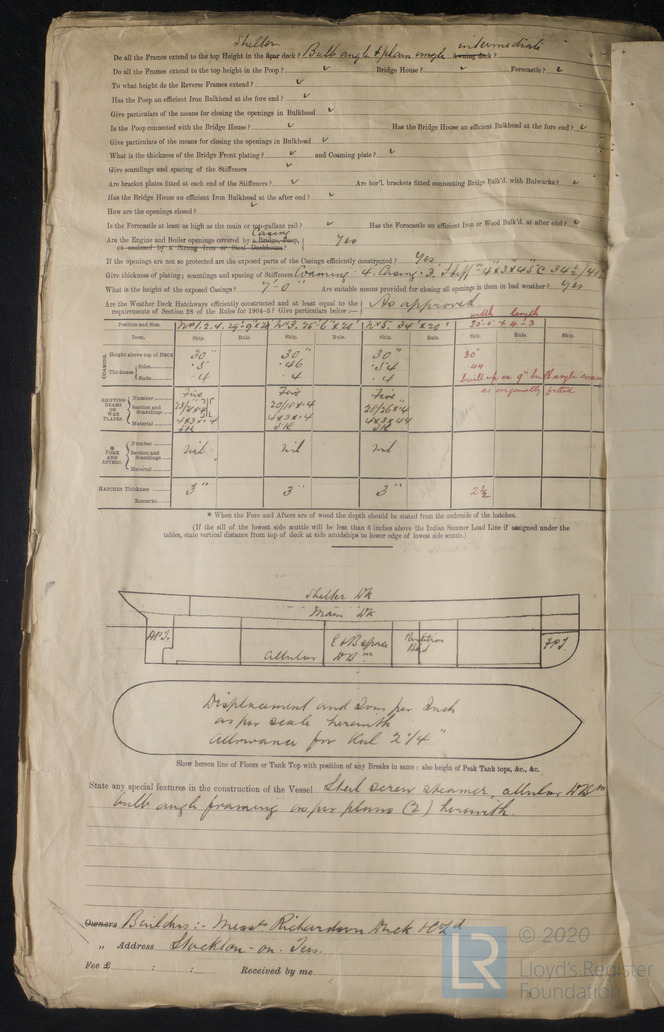 Shelter intermediate
Do all the Frames extend to the top Height in the Spar deck? Bulb angle & plain angle Awning deck?
Do all the Frames extend to the top height in the Poop? ✓ Bridge House? ✓ Forecastle? ✓
To what height do the Reverse Frames extend? ✓
Has the Poop an efficient Iron Bulkhead at the fore end? ✓
Give particulars of the means for closing the openings in Bulkhead ✓
Is the Poop connected with the Bridge House? ✓ Has the Bridge House an efficient Bulkhead at the fore end? ✓
Give particulars of the means for closing the openings in Bulkhead ✓
What is the thickness of the Bridge Front plating? ✓ and Coaming plate? ✓
Give scantlings and spacing of the Stiffeners ✓
Are bracket plates fitted at each end of the Stiffeners? ✓ Are hor'l. brackets fitted connecting Bridge Bulk'd. with Bulwarks? ✓
Has the Bridge House an efficient Iron Bulkhead at the after end? ✓
How are the openings closed? ✓
Is the Forecastle at least as high as the main or top-gallant rail? ✓ Has the Forecastle an efficient Iron or Wood Bulk'd. at after end? ✓
Casing
Are the Engine and Boiler openings covered by a Bridge, Poop, Yes
or enclosed by a Strong Iron or Steel Deckhouse?
If the openings are not so protected are the exposed parts of the Casings efficiently constructed? Yes
Give thickness of plating; scantlings and spacing of Stiffeners Coaming .4. Casing .3. Stiff rs 4 x 3 x 45 C 34½
What is the height of the exposed Casings? 7'-0" Are suitable means provided for closing all openings in them in bad weather? Yes
Are the Weather Deck Hatchways efficiently constructed and at least equal to the
requirements of Section 28 of the Rules for 1904-5? Give particulars below:— As approved
width length
Position and Size. No 1. 2. 4. 29'-9" x 20 No 3. 25'-6" x 20' No 5. 34' x 20' 20'-0" + 4-3
Item. Ship. Rule. Ship. Rule. Ship. Rule. Ship. Ship.
COAMING Height above top of DECK 30" 30" 30" 30"
Thickness Sides .5 .46 .54 .44
Ends .4 .4 .4 built up on 9" bulb angle
as originally fitted
SHIFTING BEAMS OR WEB PLATES. Number Five Five Five
Section and Scantlings 20/18 x .4 28/26 x .4
4 x 3 x .4 4 x 3 x .4 4 x 3 x 44
Material Stl Stl Stl
* FORE AND AFTERS. Number
Section and Scantlings nil nil nil
Material
HATCHES Thickness 3" 3" 3" 2½
Remarks
* When the Fore and Afters are of wood the depth should be stated from the underside of the hatches.
(If the sill of the lowest side scuttle will be less than 6 inches above the Indian Summer Load Line if assigned under the
tables, state vertical distance from top of deck at side amidships to lower edge of lowest side scuttle.)
Shelter Dk
Main Dk
A.P.T. Cellular E & B space D B m Partition Bhd F.P.T.
Displacement and Tons per Inch
as per scale herewith
Allowance for Keel 2 1/4"
Show hereon line of Floors or Tank Top with position of any Breaks in same: also height of Peak Tank tops, &c., &c.
State any special features in the construction of the Vessel Steel screw steamer, cellular D B m
bulb angle framing as per plans (2) herewith.
Owners Builders:- Messrs Richardson Duck & Co Ld
„ Address Stockton-on-Tees
Fee £ : : Received by me
© 2020
LR Lloyd's Register
Foundation